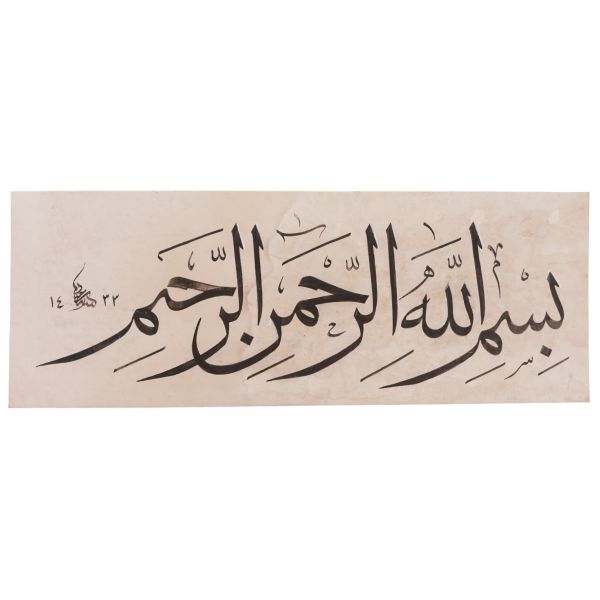 بِسْمِ اللّٰهِ الرَّحْمٰنِ الرَّحِيمِ
١٤ ٣٢